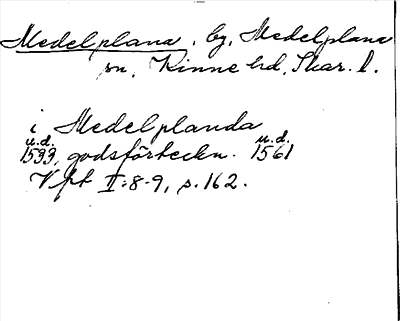 Medelplana, by, Medelplana
sn, Kinne hd, Skar. l.
i Medelplanda
u.d. u.d.
1533, godsförteckn. 1561
Vfft II:8-9, s. 162.